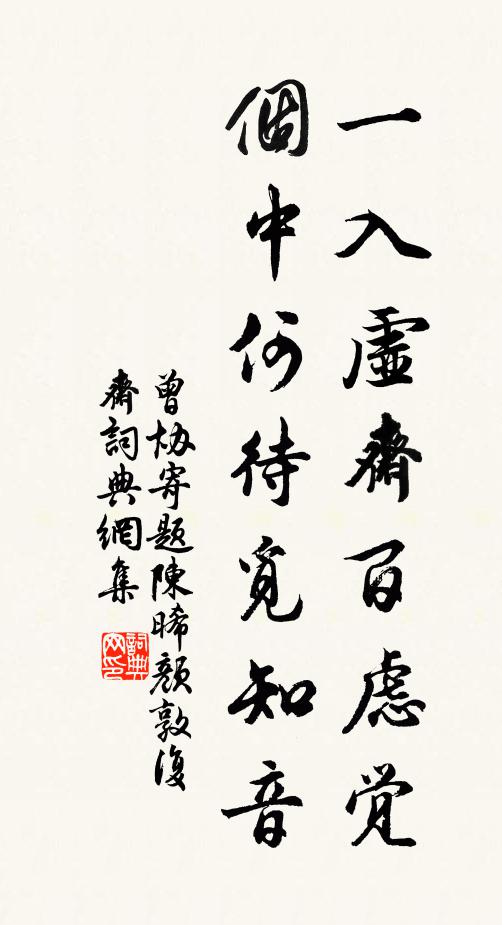 一入虛齋百慮覺
個中何待覓知音
曾協寄題陳晞顏敦復
齋詞典網集
詞典网印